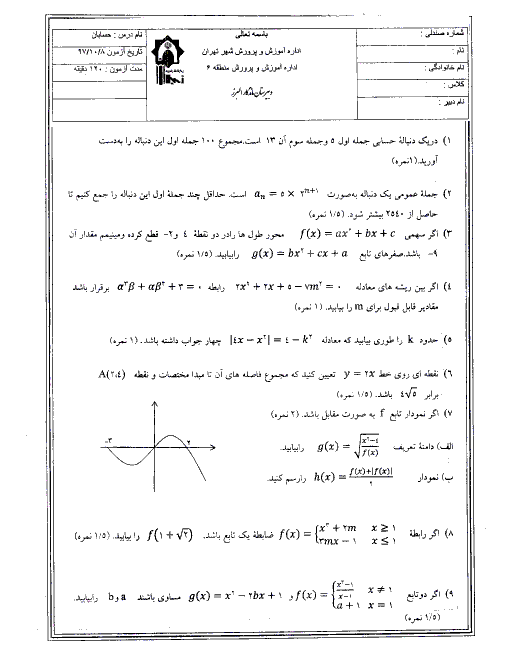 باسمه تعالی
اداره آموزش و پرورش شهر تهران
اداره آموزش و پرورش منطقه ۶
دبیرستان ماندگار البرز
شماره صندلی :
نام :
نام خانوادگی :
کلاس :
نام دبیر :
نام درس : حسابان
تاریخ آزمون ۹۷/۱۰/۸
مدت آزمون : ۱۲۰ دقیقه
۱) دریک دنبالۀ حسابی جمله اول ۵ وجمله سوم آن ۱۳ است.مجموع ۱۰۰ جمله اول این دنباله را به‌دست
آورید.(۱نمره)
۲) جملۀ عمومی یک دنباله به‌صورت aₙ = ۵ × ۳ⁿ⁺¹ است. حداقل چند جملۀ اول این دنباله را جمع کنیم تا
حاصل از ۲۵۴۰ بیشتر شود. (۱/۵ نمره)
۳) اگر سهمی f(x) = ax² + bx + c محور طول ها رادر دو نقطۀ ٤ و۲- قطع کرده ومینیمم مقدار آن
۹- باشد.صفرهای تابع g(x) = bx² + cx + a رابیابید. (۱/۵ نمره)
٤) اگر بین ریشه های معادله ۲x² + ۲x + ۵ − ۷m² = ۰ رابطه α³β + αβ³ + ۳ = ۰ برقرار باشد
مقادیر قابل قبول برای m را بیابید. (۱ نمره)
۵) حدود k را طوری بیابید که معادله |٤x − x²| = ٤ − k² چهار جواب داشته باشد. (۱ نمره)
۶) نقطه ای روی خط y = ۲x تعیین کنید که مجموع فاصله های آن تا مبدا مختصات و نقطه A(۲،٤)
برابر ٤√۵ باشد. (۱/۵ نمره)
۷) اگر نمودار تابع f به صورت مقابل باشد. (۲ نمره)
-۳ ۲
الف) دامنۀ تعریف g(x) = √((x²−٤)/f(x)) رابیابید.
ب) نمودار h(x) = (f(x)+|f(x)|)/۲ رارسم کنید.
۸) اگر رابطۀ f(x) = {x² + ۲m x ≥ ۱
۳mx − ۱ x ≤ ۱ ضابطۀ یک تابع باشد. f(۱ + √۲) را بیابید. (۱/۵ نمره)
۹) اگر دوتابع f(x) = {(x²−۱)/(x−۱) x ≠ ۱
a + ۱ x = ۱ و g(x) = x² − ۲bx + ۱ مساوی باشند a و b رابیابید.
(۱/۵ نمره)